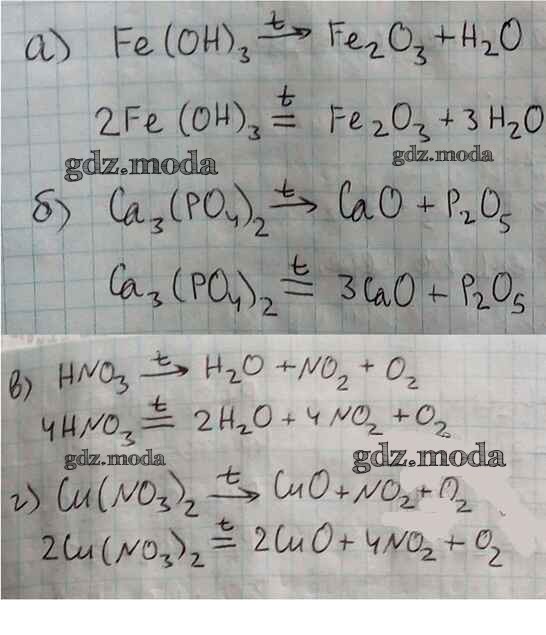 а) Fe(OH)₃ →ᵗ Fe₂O₃ + H₂O
2Fe(OH)₃ =ᵗ Fe₂O₃ + 3H₂O
gdz.moda gdz.moda
б) Ca₃(PO₄)₂ →ᵗ CaO + P₂O₅
Ca₃(PO₄)₂ =ᵗ 3CaO + P₂O₅
в) HNO₃ →ᵗ H₂O + NO₂ + O₂
4HNO₃ =ᵗ 2H₂O + 4NO₂ + O₂
gdz.moda gdz.moda
г) Cu(NO₃)₂ →ᵗ CuO + NO₂ + O₂
2Cu(NO₃)₂ =ᵗ 2CuO + 4NO₂ + O₂